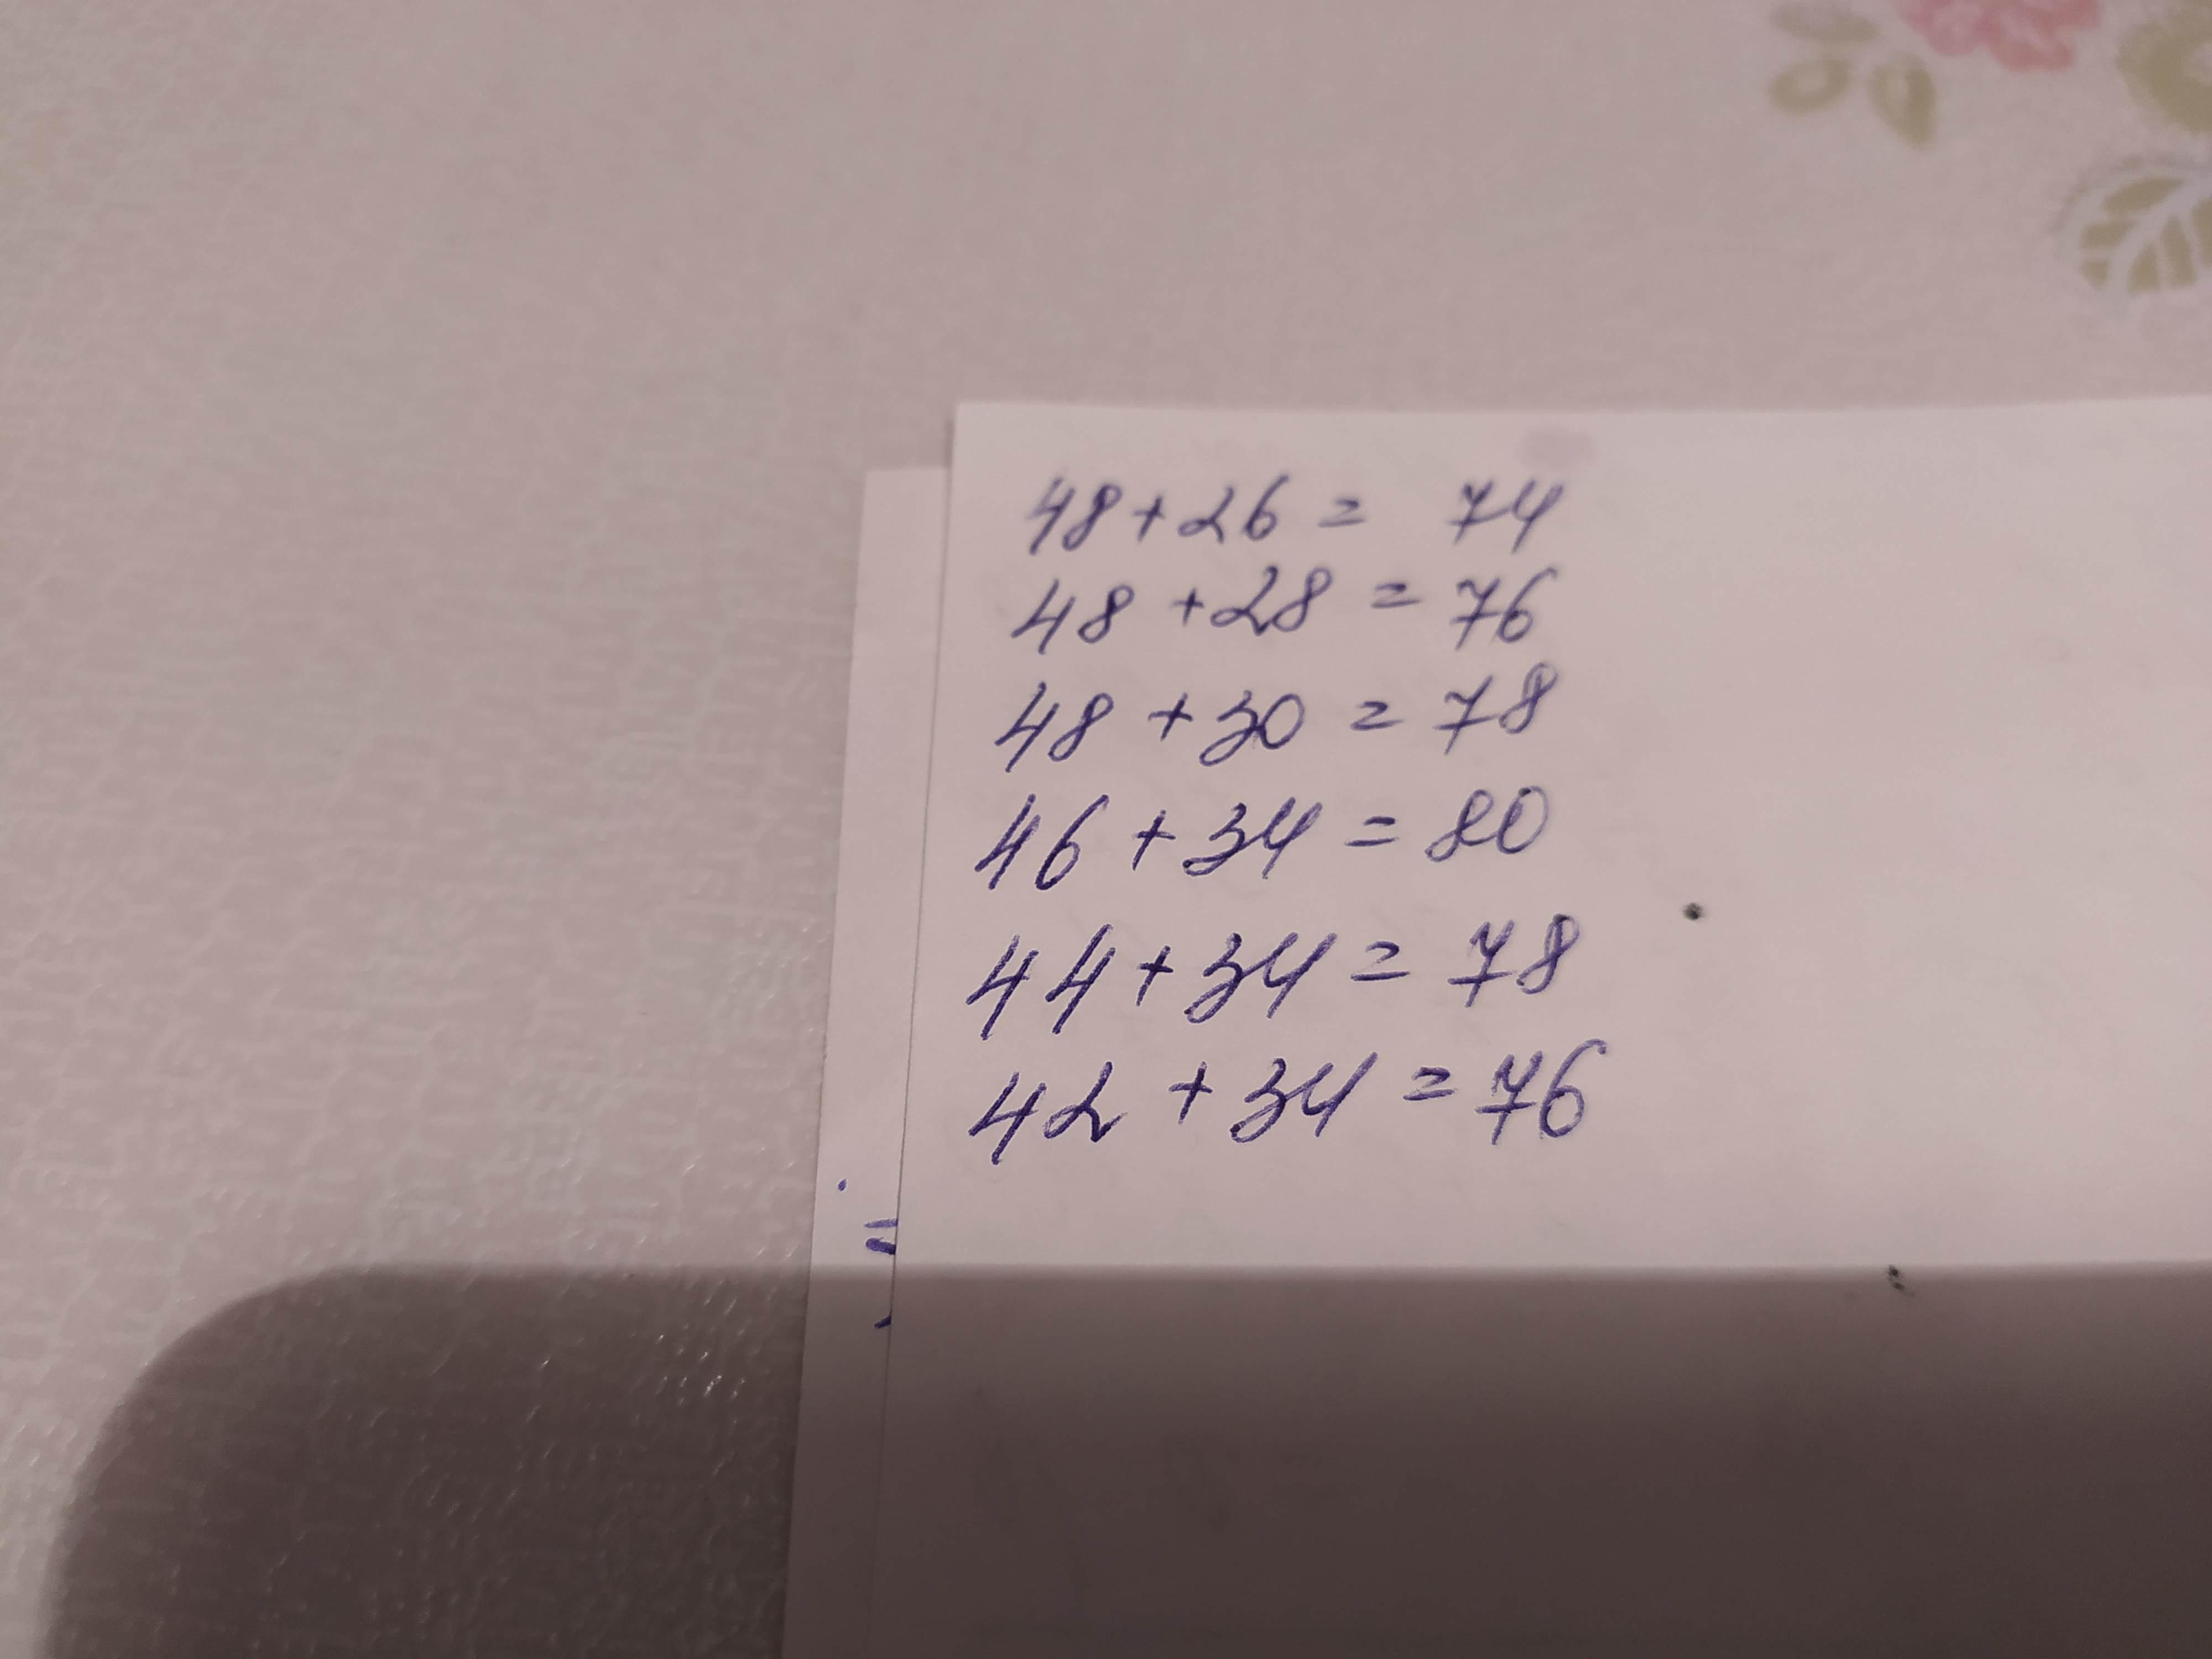 48+26= 74
48 +28 = 76
48 +30 = 78
46 +34 = 80
44+34 = 78
42 +34 = 76
=